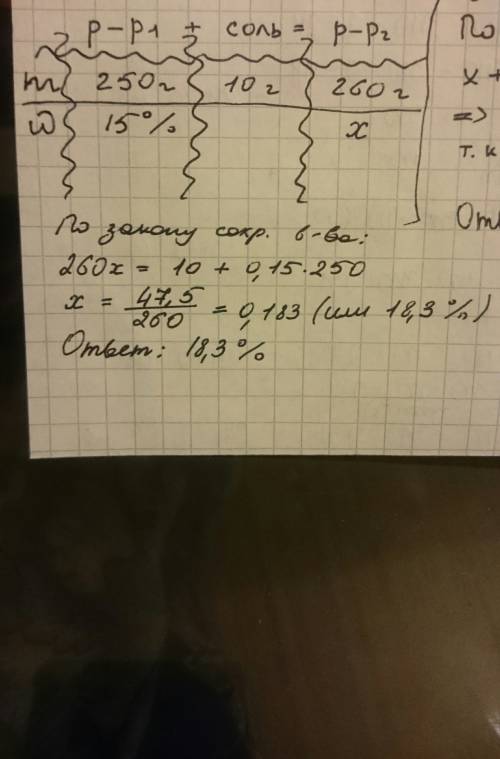 р-р1 + соль = р-р2
m 250г 10г 260г
ω 15% x
По закону сохр. в-ва:
260x = 10 + 0,15·250
x = 47,5/260 = 0,183 (или 18,3%)
Ответ: 18,3%
По
x +
=>
т.к
Отв